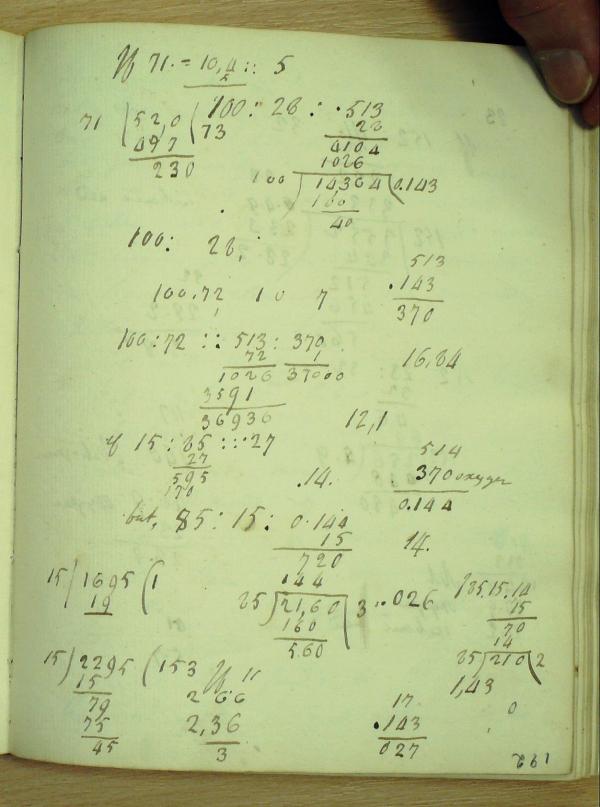 If 71. = 10,4 :: 5
5
100 : 28 : .513
71 ( 52,0 ( 73
28
497
4104
230
1026
100 ) 14364 ( 0.143
100
40
100 : 28,
513
.143
370
100.72 10 7
100 : 72 :: 513 : 370
72 1
1026 37000
3591
36936
16,84
12,1
if 15 : 85 :: 27
27
595
170
.14.
514
370 oxygen
0.144
but, 85 : 15 : 0.144
15
720
144
14.
15 ) 1695 ( 1
19
85 ) 21,60 ) 3 .. 026
160
560
85.15.14
15
70
14
85 ) 210 ( 2
1,43
0
15 ) 2295 ( 153
15
79
75
45
If 11
2 66
2,36
3
17
.143
027
192